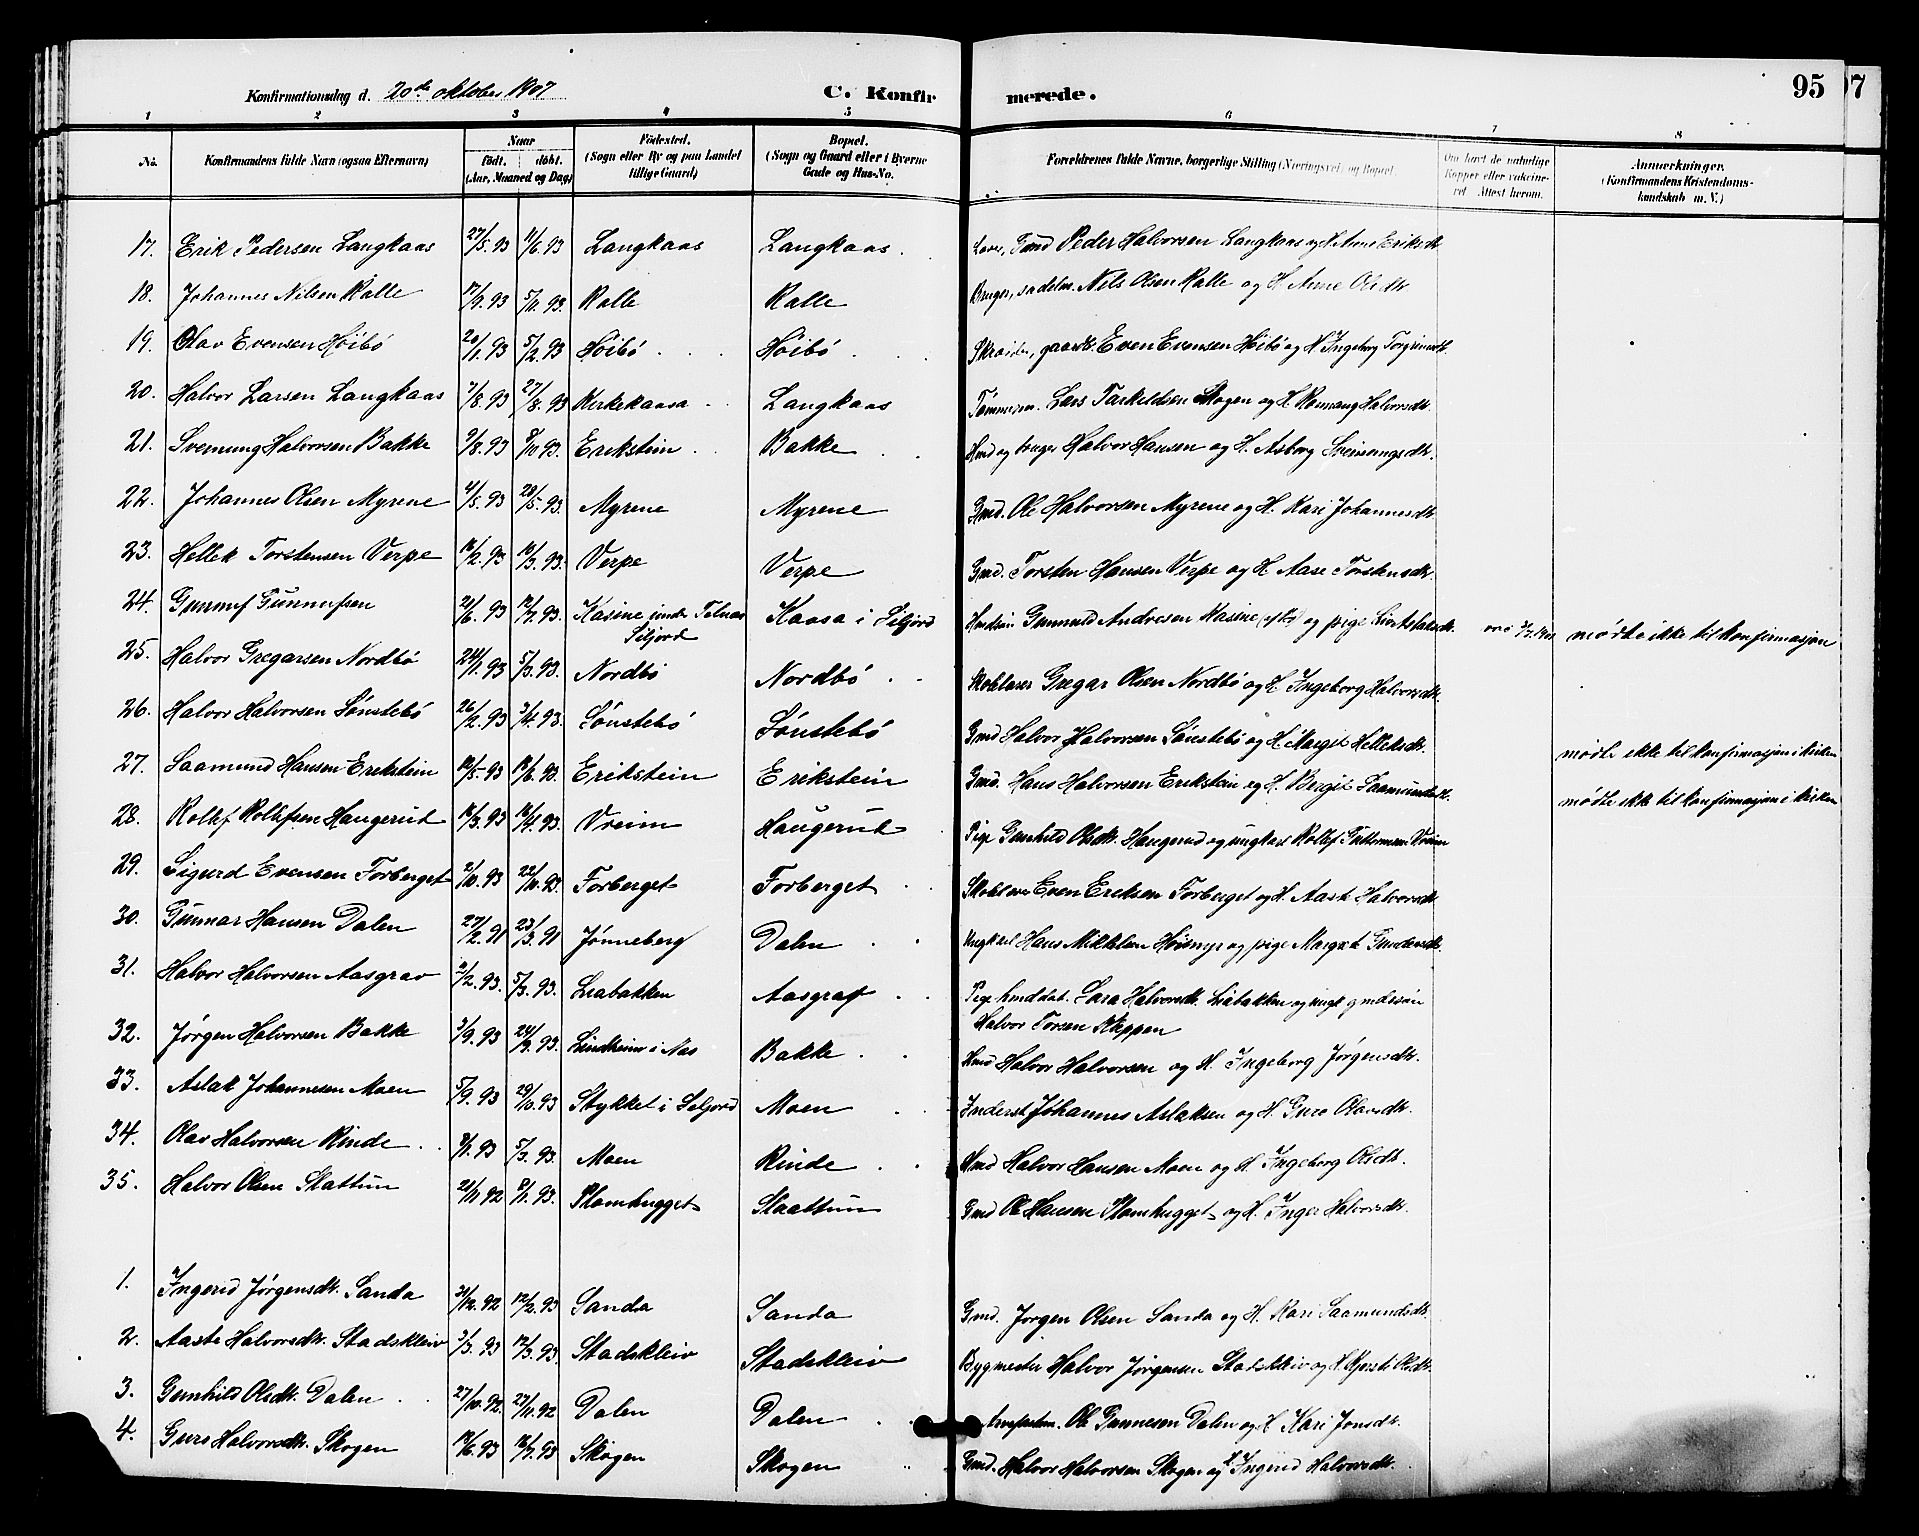 Konfirmationsdag d. 20de oktober 1907 C. Konfirmerede. 95 97
1 2 3 4 5 6 7 8
No. Konfirmandens fulde Navn (ogsaa Efternavn) Naar født. døbt. (Aar, Maaned og Dag) Fødested. (Sogn eller By og paa Landet tillige Gaard) Bopæl. (Sogn og Gaard eller i Byerne Gade og Hus-No. Forældrenes fulde Navne, borgerlige Stilling (Næringsvei) og Bopæl. Om havt de naturlige Kopper eller vakcineret. Attest herom. Anmerkninger. (Konfirmandens Kristendomskundskab m. V.)
17. Erik Pedersen Langkaas 27/5.93 11/6.93 Langkaas Langkaas. Peder Halvorsen Langkaas og H. Anne Eriksdt.
18. Johannes Nilsen Kalle 17/9.93 5/11.93. Kalle Kalle Bruger, sadelm. Nils Olsen Kalle og H. Anne Olsdt.
19. Olav Evensen Høibø 20/1.93 5/2.93 Høibø Høibø Even Evensen Høibø og H. Ingeborg Torgrimsdt.
20. Halvor Larsen Langkaas 7/8.93 27/8.93 Kirkekaasa Langkaas Tømmerm. Lars Tarkeldsen Skogen og H. Rannaug Halvorsdt.
21. Svenung Halvorsen Bakke 9/8.93 8/10.93. Erikstein Bakke Hmd og bruger Halvor Hansen og H. Asborg Sveinungsdt.
22. Johannes Olsen Myrene 4/5.93 28/5.93. Myrene Myrene Gmd. Ole Halvorsen Myrene og H. Kari Johannesdt.
23. Hellek Torstensen Verpe 16/2.93 10/3.93. Verpe Verpe Gmd. Torsten Hansen Verpe og H. Aase Torstensdt.
24. Gunnuf Gunnufsen 21/6.93 12/7.93. Kasine under Telnas Siljord Kaasa i Siljord Gunnuf Andresen Kasine og pige mødte ikke til konfirmasjon
25. Halvor Gregarsen Nordbø 24/1.93 5/3.93. Nordbø Nordbø Skoklaser Gregar Olsen Nordbø og H. Ingeborg Halvorsdt.
26. Halvor Halvorsen Sønstebø 26/2.93 3/4.93. Sønstebø Sønstebø Gmd Halvor Halvorsen Sønstebø og H. Marget Helleksdt. mødte ikke til konfirmasjon i kirken
27. Saamund Hansen Erikstein 14/5.93 11/6.93. Erikstein Erikstein Gmd. Hans Halvorsen Erikstein og H. Bergit Saamundsdt. mødte ikke til konfirmasjon i kirken
28. Rollef Rollefsen Haugerud 16/3.93 16/4.93. Vreim Haugerud Pige Gunhild Olsdt. Haugerud og ungkarl Rollef Guttormsen Vreim
29. Sigurd Evensen Forberget 2/10.93 22/10.93. Forberget Forberget Even Eriksen Forberget og H. Aaste Halvorsdt.
30. Gunnar Hansen Dalen 27/2.91 23/3.91 Jønneberg Dalen Ungkarl Hans Mikkelsen Høismyr og pige Margit Gundersdt.
31. Halvor Halvorsen Aasgrav 2/2.93. 5/3.93. Liabakken Aasgraf Pige hmddat. Sara Halvorsdt. Liabakken og ungk. gmdesøn
Halvor Torsen Kleppen
32. Jørgen Halvorsen Bakke 3/9.93 24/9.93. Lindheim i Nes Bakke Hmd Halvor Halvorsen og H. Ingeborg Jørgensdt.
33. Aslak Johannesen Moen 5/9.93 29/10.93 Stykket i Seljord Moen Inderst Johannes Aslaksen og H. Guro Olavsdt.
34. Olav Halvorsen Rinde 8/1.93 5/3.93. Moen Rinde Hmd Halvor Hansen Moen og H. Ingeborg Olsdt.
35. Halvor Olsen Skattum 21/11 92 8/1.93. Plomhugget Skaattun Gmd Ole Hansen Plomhugget og H. Inger Halvorsdt.
1. Ingerid Jørgensdt. Sanda 31/12.92 12/2.93 Sanda Sanda Gmd. Jørgen Olsen Sanda og H. Kari Saamundsdt.
2. Aaste Halvorsdt. Stadskleiv 3/3.93 12/3.93. Stadskleiv Stadskleiv Bygmester Halvor Jørgensen Stadskleiv og H. Kjersti Olsdt.
3. Gunhild Olsdt. Dalen 27/10.92. 27/11.92 Dalen Dalen Ole Gunnesen Dalen og H. Kari Jonsdt.
4. Guro Halvorsdt. Skogen 14/6.93 16/7.93 Skogen Skogen Gmd. Halvor Halvorsen Skogen og H. Ingerid Halvorsdt.